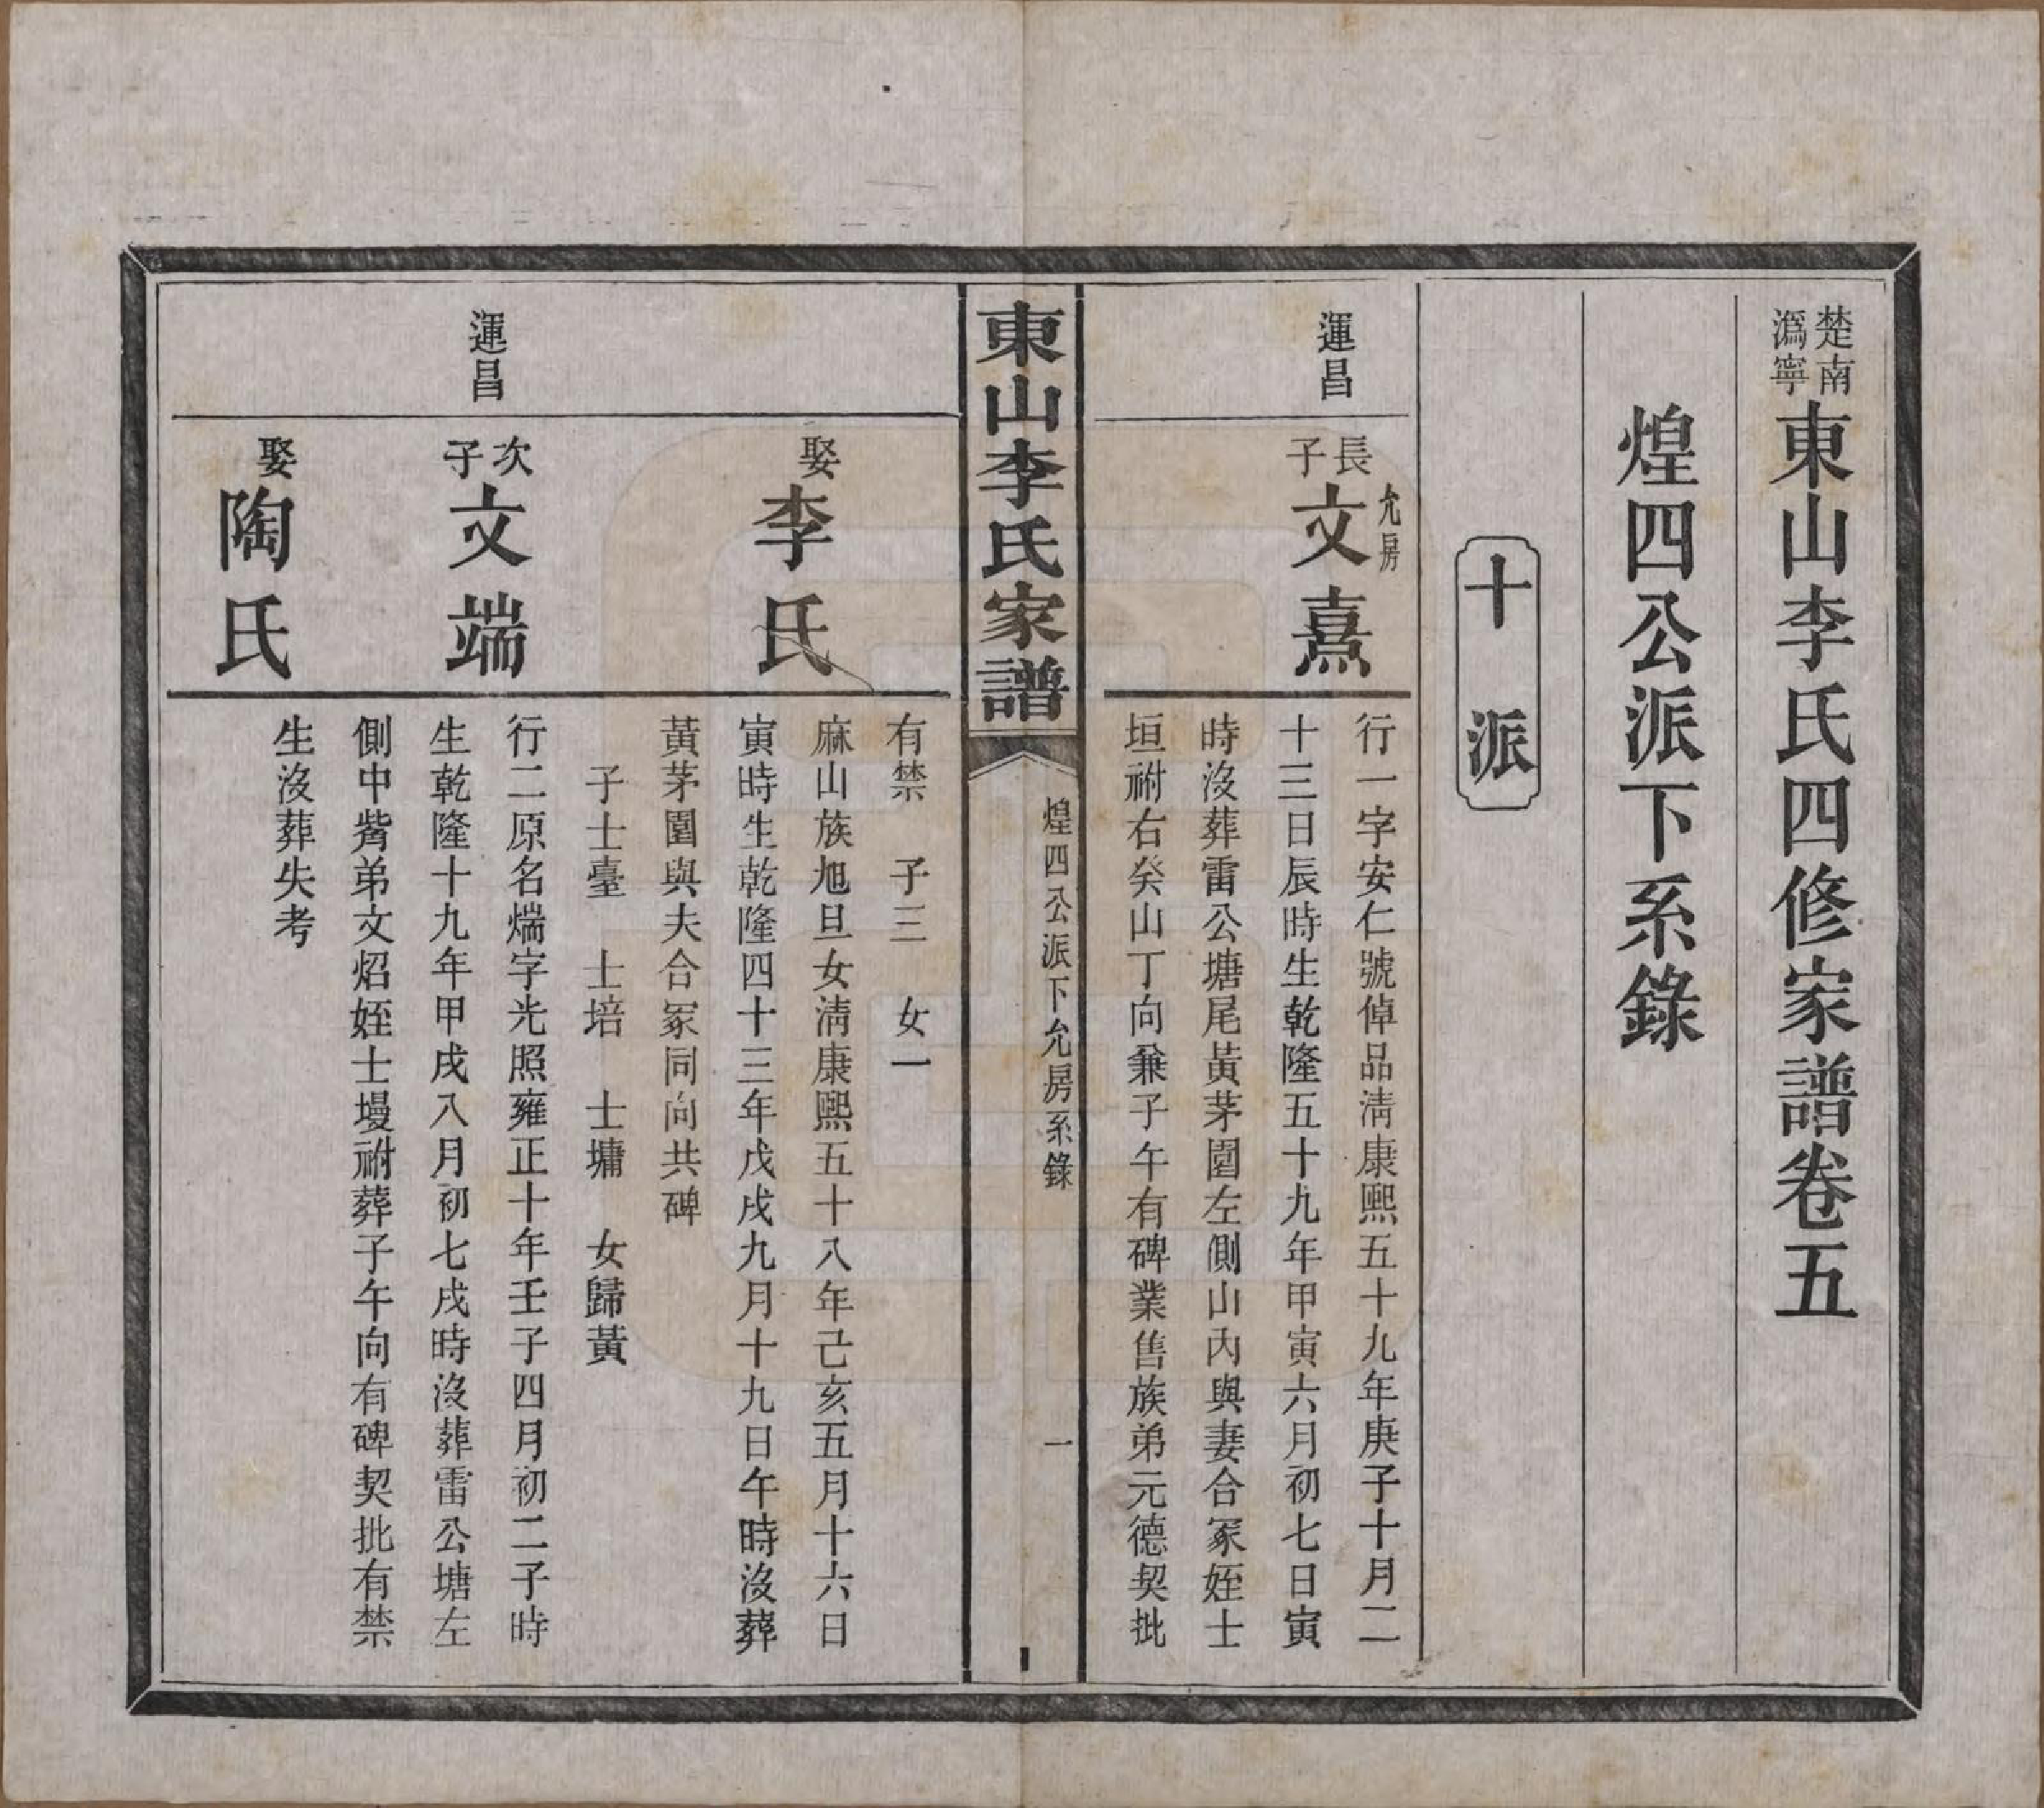 楚南
溈寧
東山李氏四修家譜卷五
煌四公派下系錄
十派
運昌
長子
允房
文熹
行一字安仁號倬品淸康熙五十九年庚子十月二
十三日辰時生乾隆五十九年甲寅六月初七日寅
時沒葬雷公塘尾黃茅園左側山內與妻合冢姪士
垣祔右癸山丁向兼子午有碑業售族弟元德契批
東山李氏家譜
煌四公派下允房系錄
一
有禁 子三 女一
娶
李氏
麻山族旭旦女淸康熙五十八年己亥五月十六日
寅時生乾隆四十三年戊戌九月十九日午時沒葬
黃茅園與夫合冢同向共碑
子士臺 士培 士墉 女歸黃
運昌
次子
文端
行二原名煓字光照雍正十年壬子四月初二子時
生乾隆十九年甲戌八月初七戌時沒葬雷公塘左
側中觜弟文炤姪士墁祔葬子午向有碑契批有禁
娶
陶氏
生沒葬失考